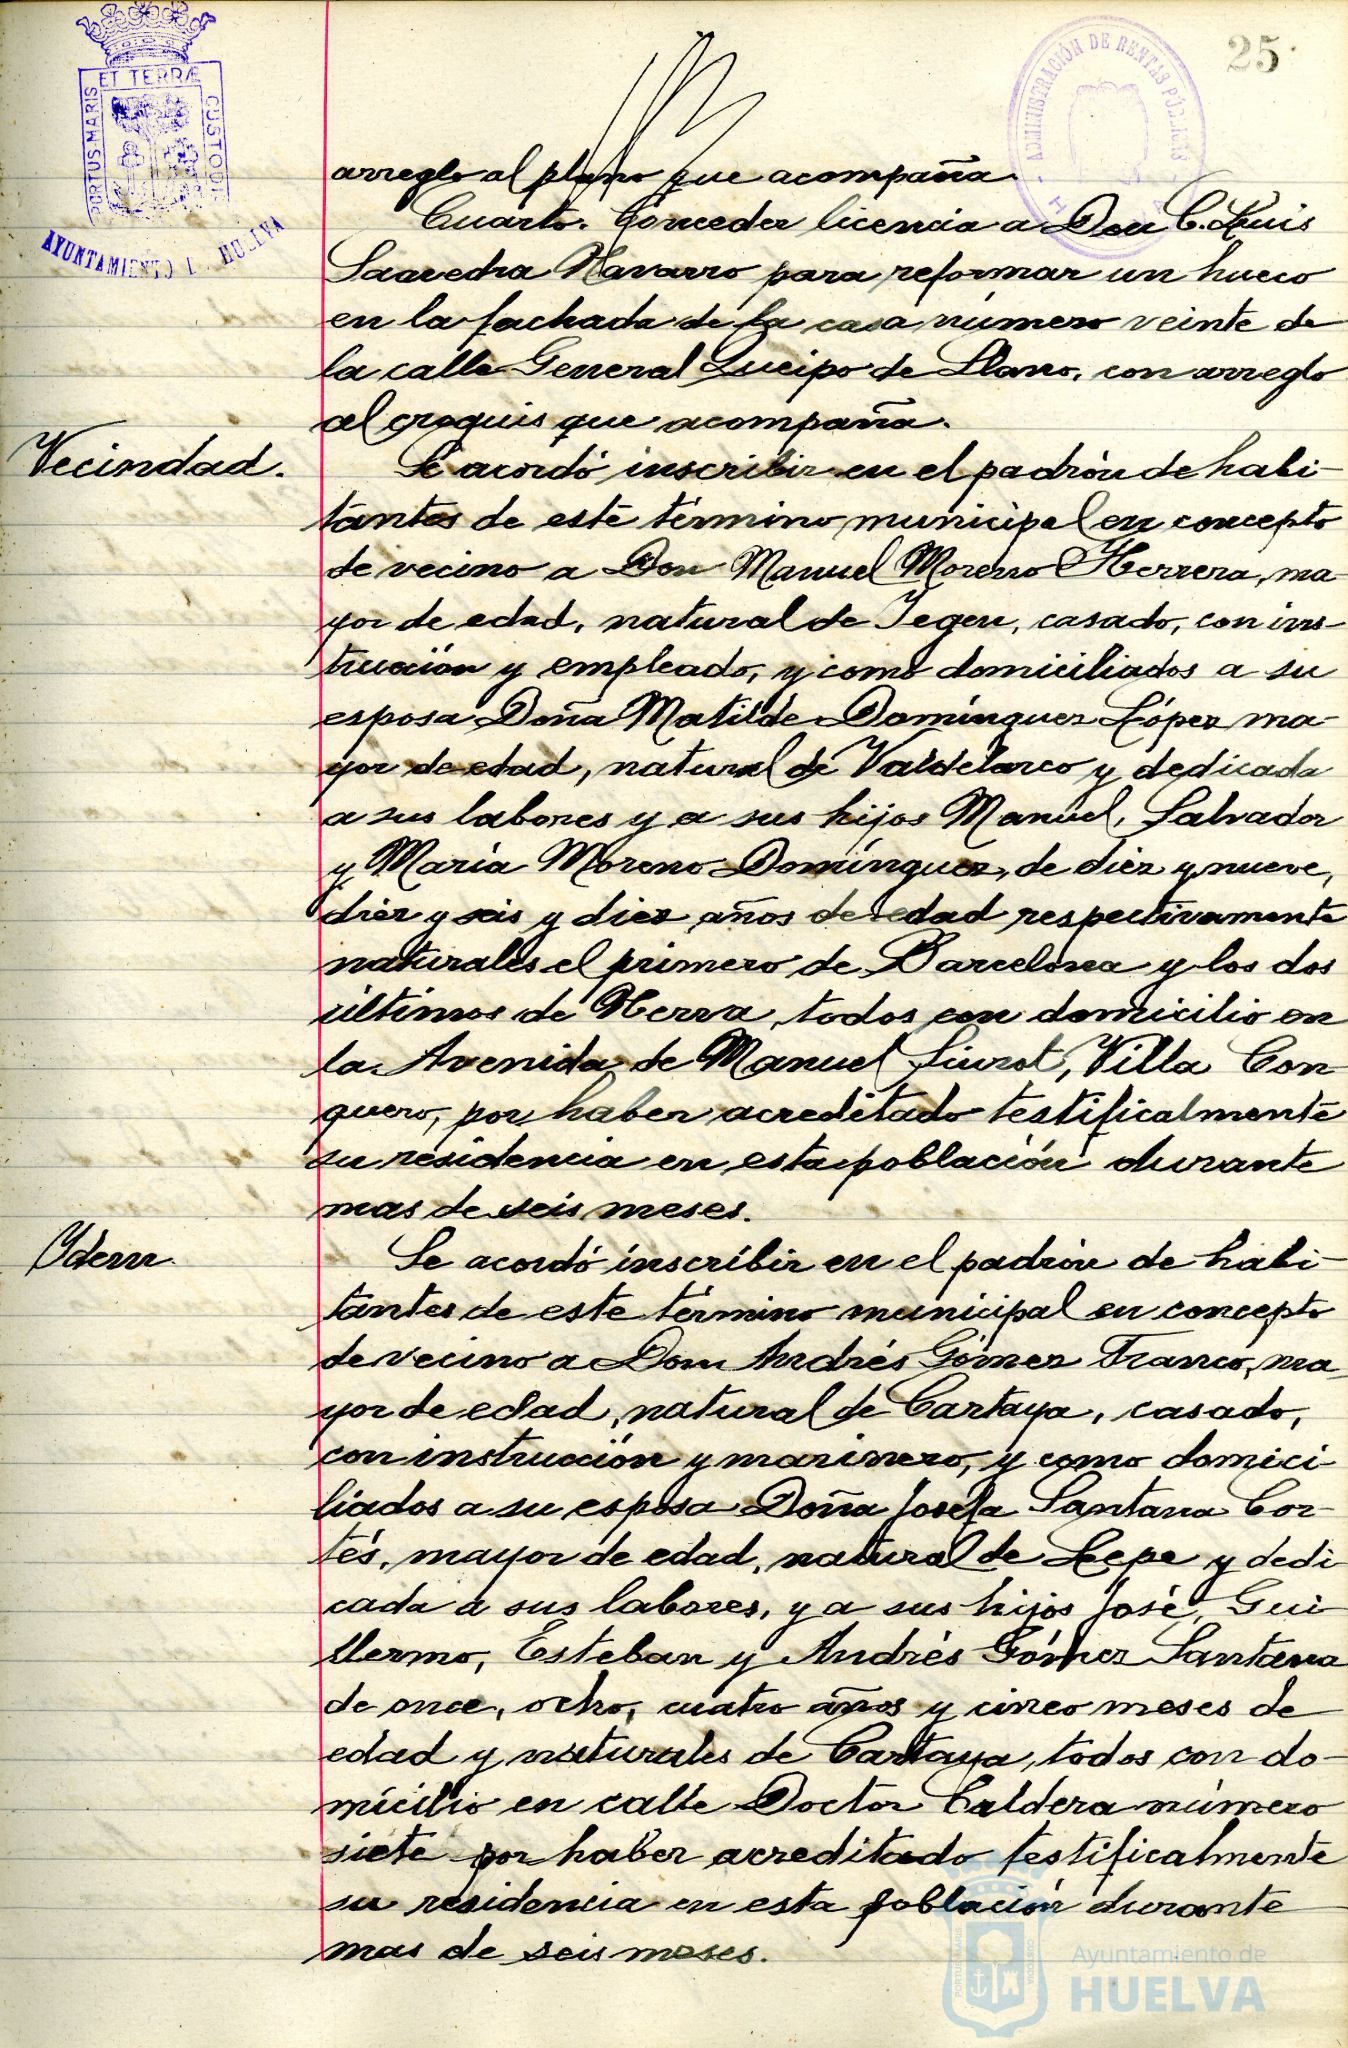 25
ET TERRÆ
PORTUS MARIS
CUSTODIA
AYUNTAMIENTO DE HUELVA
ADMINISTRACIÓN DE RENTAS PÚBLICAS
arreglo al plano que acompaña.
Cuarto. Conceder licencia a Don C. Luis
Saavedra Navarro para reformar un hueco
en la fachada de la casa número veinte de
la calle General Queipo de Llano, con arreglo
al croquis que acompaña.
Vecindad.
Se acordó inscribir en el padrón de habi-
tantes de este término municipal en concepto
de vecino a Don Manuel Moreno Herrera, ma-
yor de edad, natural de casado, con ins-
trucción y empleado, y como domiciliados a su
esposa Doña Matilde Domínguez López ma-
yor de edad, natural de Valdelarco y dedicada
a sus labores y a sus hijos Manuel, Salvador
y María Moreno Domínguez, de diez y nueve,
diez y seis y diez años de edad respectivamente
naturales el primero de Barcelona y los dos
últimos de Nerva, todos con domicilio en
la Avenida de Manuel Siurot, Villa Con-
quero, por haber acreditado testificalmente
su residencia en esta población durante
mas de seis meses.
Ydem.
Se acordó inscribir en el padrón de habi-
tantes de este término municipal en concepto
de vecino a Don Andrés Gómez Franco, ma-
yor de edad, natural de Cartaya, casado,
con instrucción y marinero, y como domici-
liados a su esposa Doña Josefa Santana Cor-
tés, mayor de edad, natural de Lepe y dedi-
cada a sus labores, y a sus hijos José, Gui-
llermo, Esteban y Andrés Gómez Santana
de once, ocho, cuatro años y cinco meses de
edad y naturales de Cartaya, todos con do-
micilio en calle Doctor Caldera número
siete por haber acreditado testificalmente
su residencia en esta población durante
mas de seis meses.
Ayuntamiento de
HUELVA